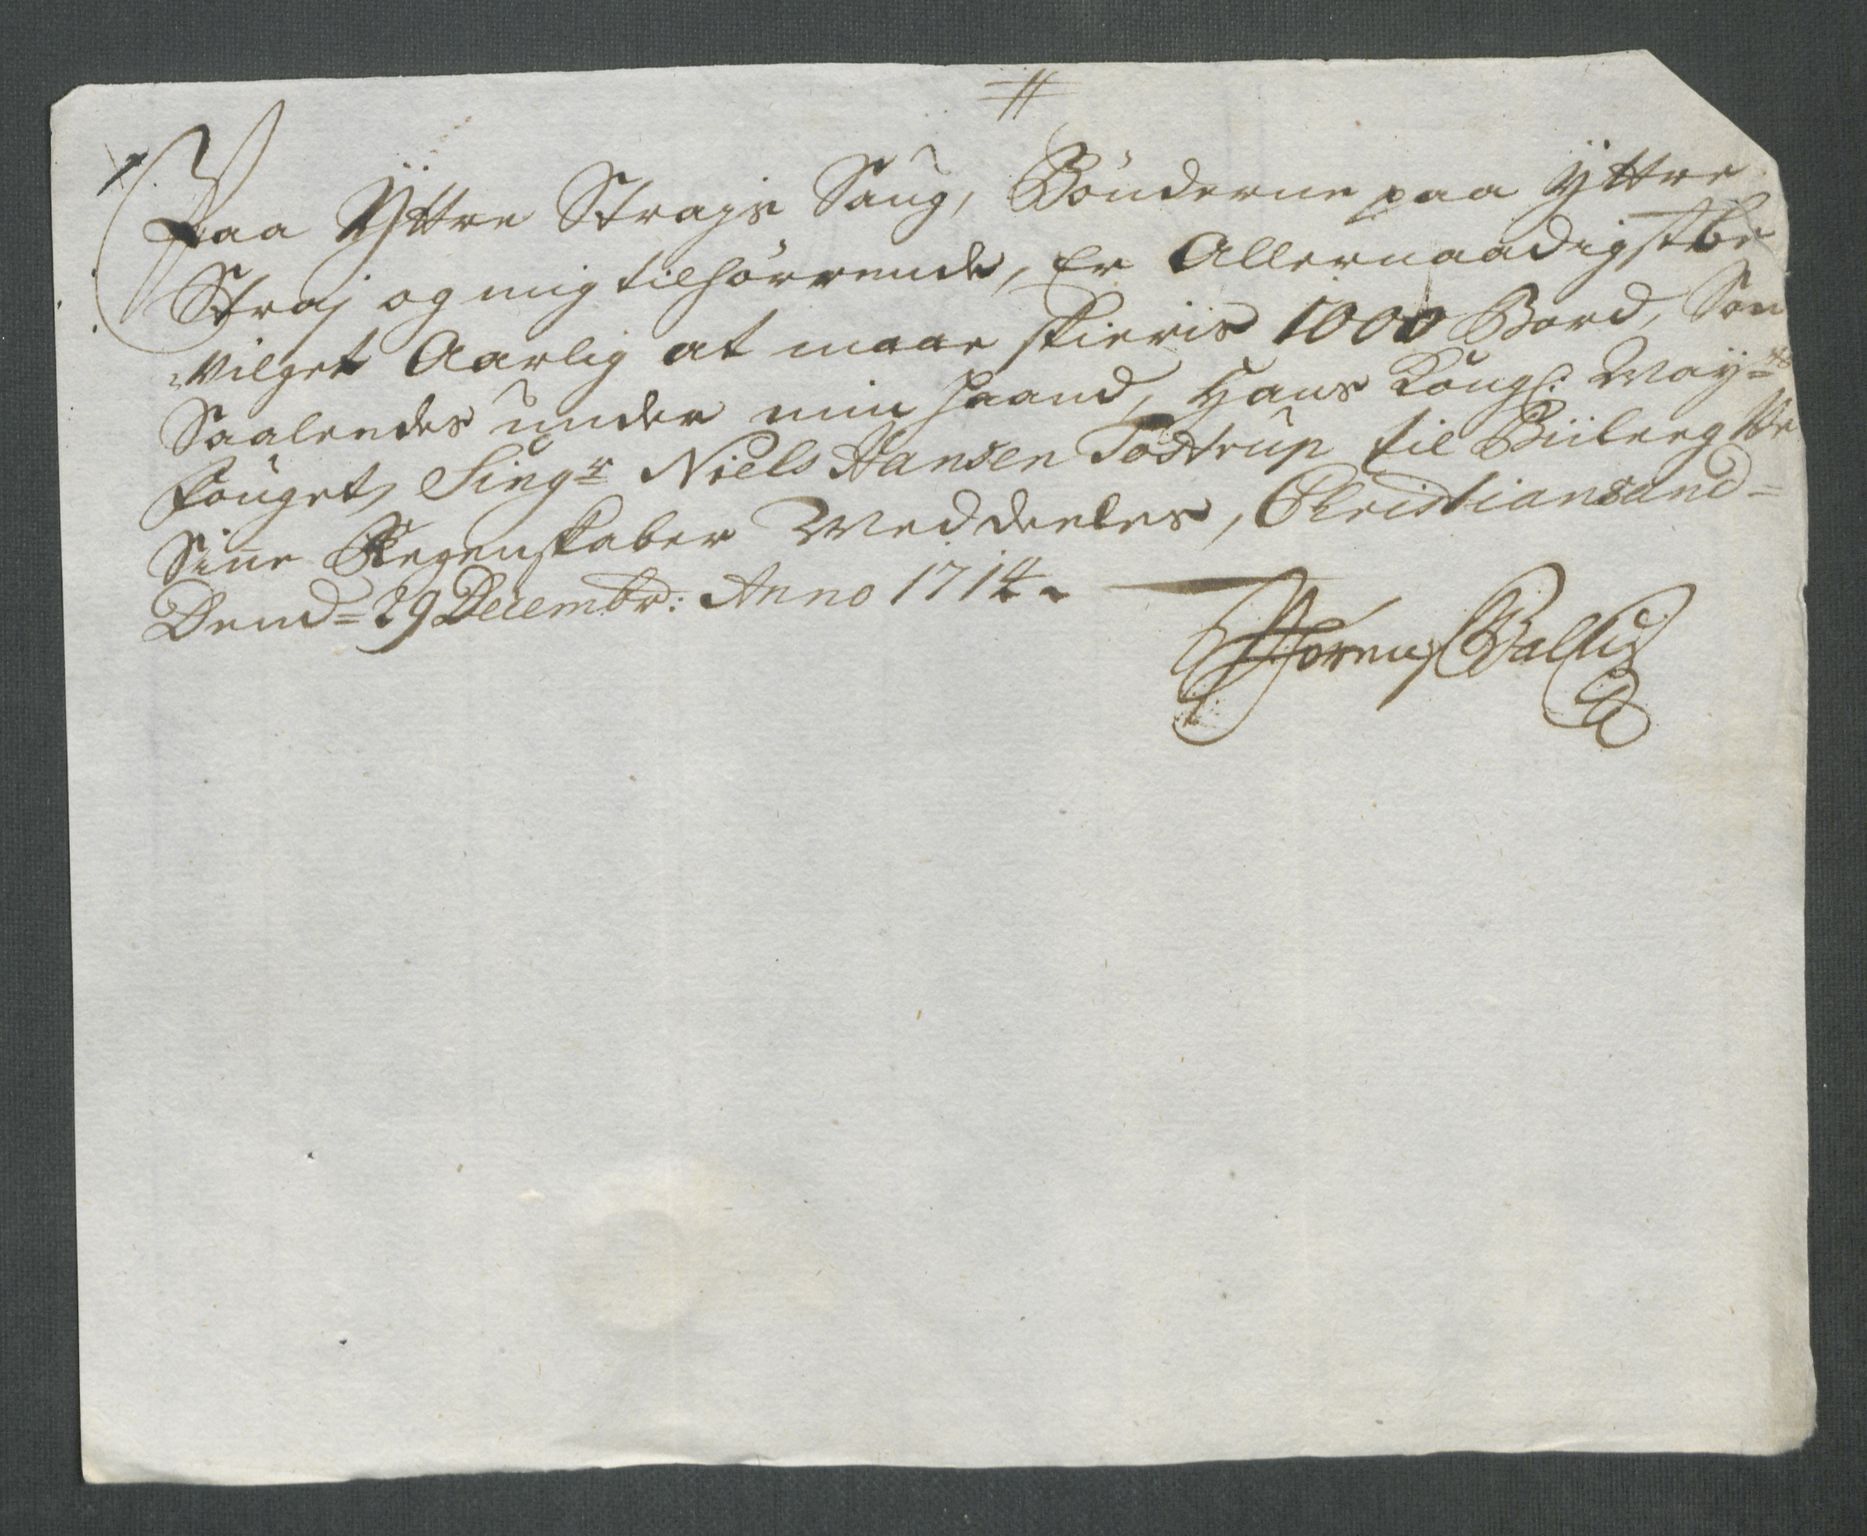 Paa Yttre Strajs Saug, Bönderne paa Yttre
Straj og mig tilhörrende, Er Allernaadigst be
vilget Aarlig at maae skieris 1000 Bord, Som
Saaledes under min Haand, Hans Kongl: May:ts
Fouget, Sing:r Niels Hansen Tostrup til Biilerg ved
Sine Regenskaber Meddeeles, Christiansand=
Dend= 29 Decembr: Anno 1714
Sörens Ballis